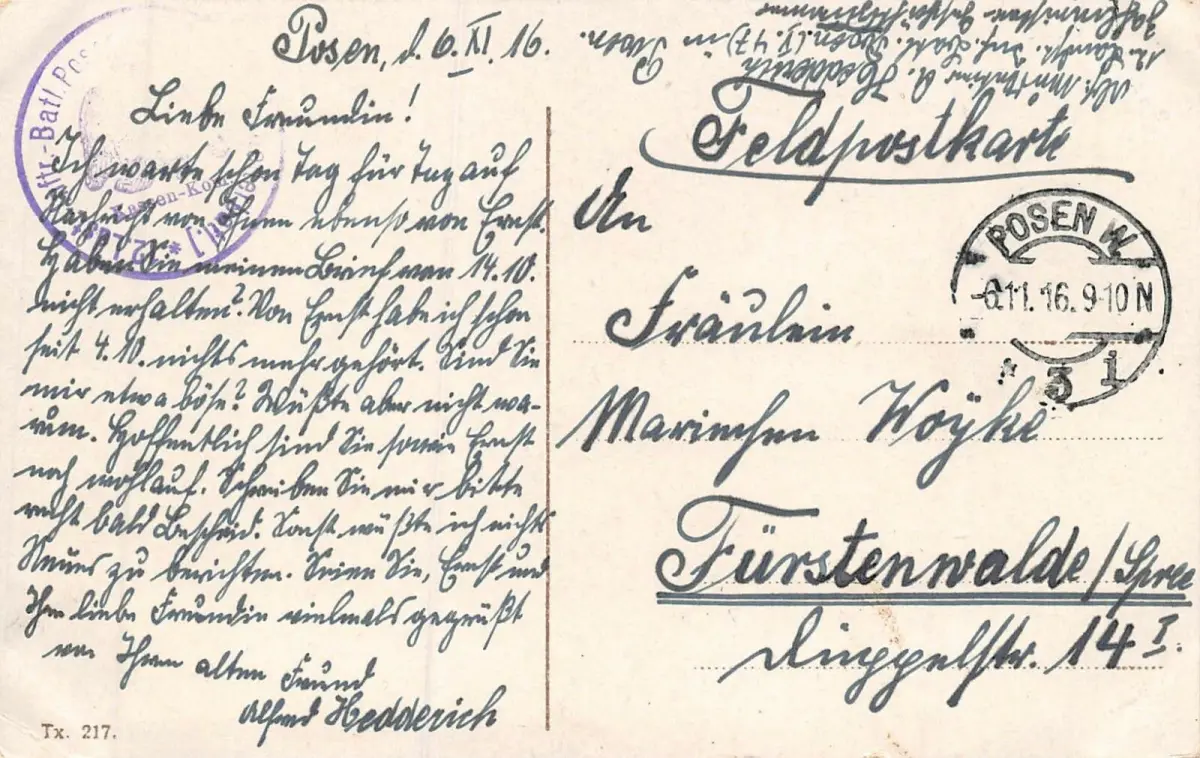 Posen, d. 6. XI. 16.
Liebe Freundin!
Ich warte schon Tag für Tag auf
Nachricht von Ihnen ebenso von Ernst.
Haben Sie meinen Brief von 14.10.
nicht erhalten? Von Ernst habe ich schon
seit 4.10. nichts mehr gehört. Sind Sie
mir etwa böse? Wüßte aber nicht wa-
rum. Hoffentlich sind Sie sowie Ernst
noch wohlauf. Schreiben Sie mir bitte
recht bald Bescheid. Sonst wüßte ich nichts
Neues zu berichten. Seien Sie, Ernst und
Ihre liebe Freundin vielmals gegrüßt
von Ihrem alten Freund
Alfred Hedderich
Tx. 217.
A. Hedderich
in Posen.
Feldpostkarte
An
Fräulein
Mariechen Woyke
Fürstenwalde/Spree
Düppelstr. 14 I.
POSEN W.
-6.11.16.9-10N
* 3 i
ftr.-Batl. Pos
Kassen-Ko